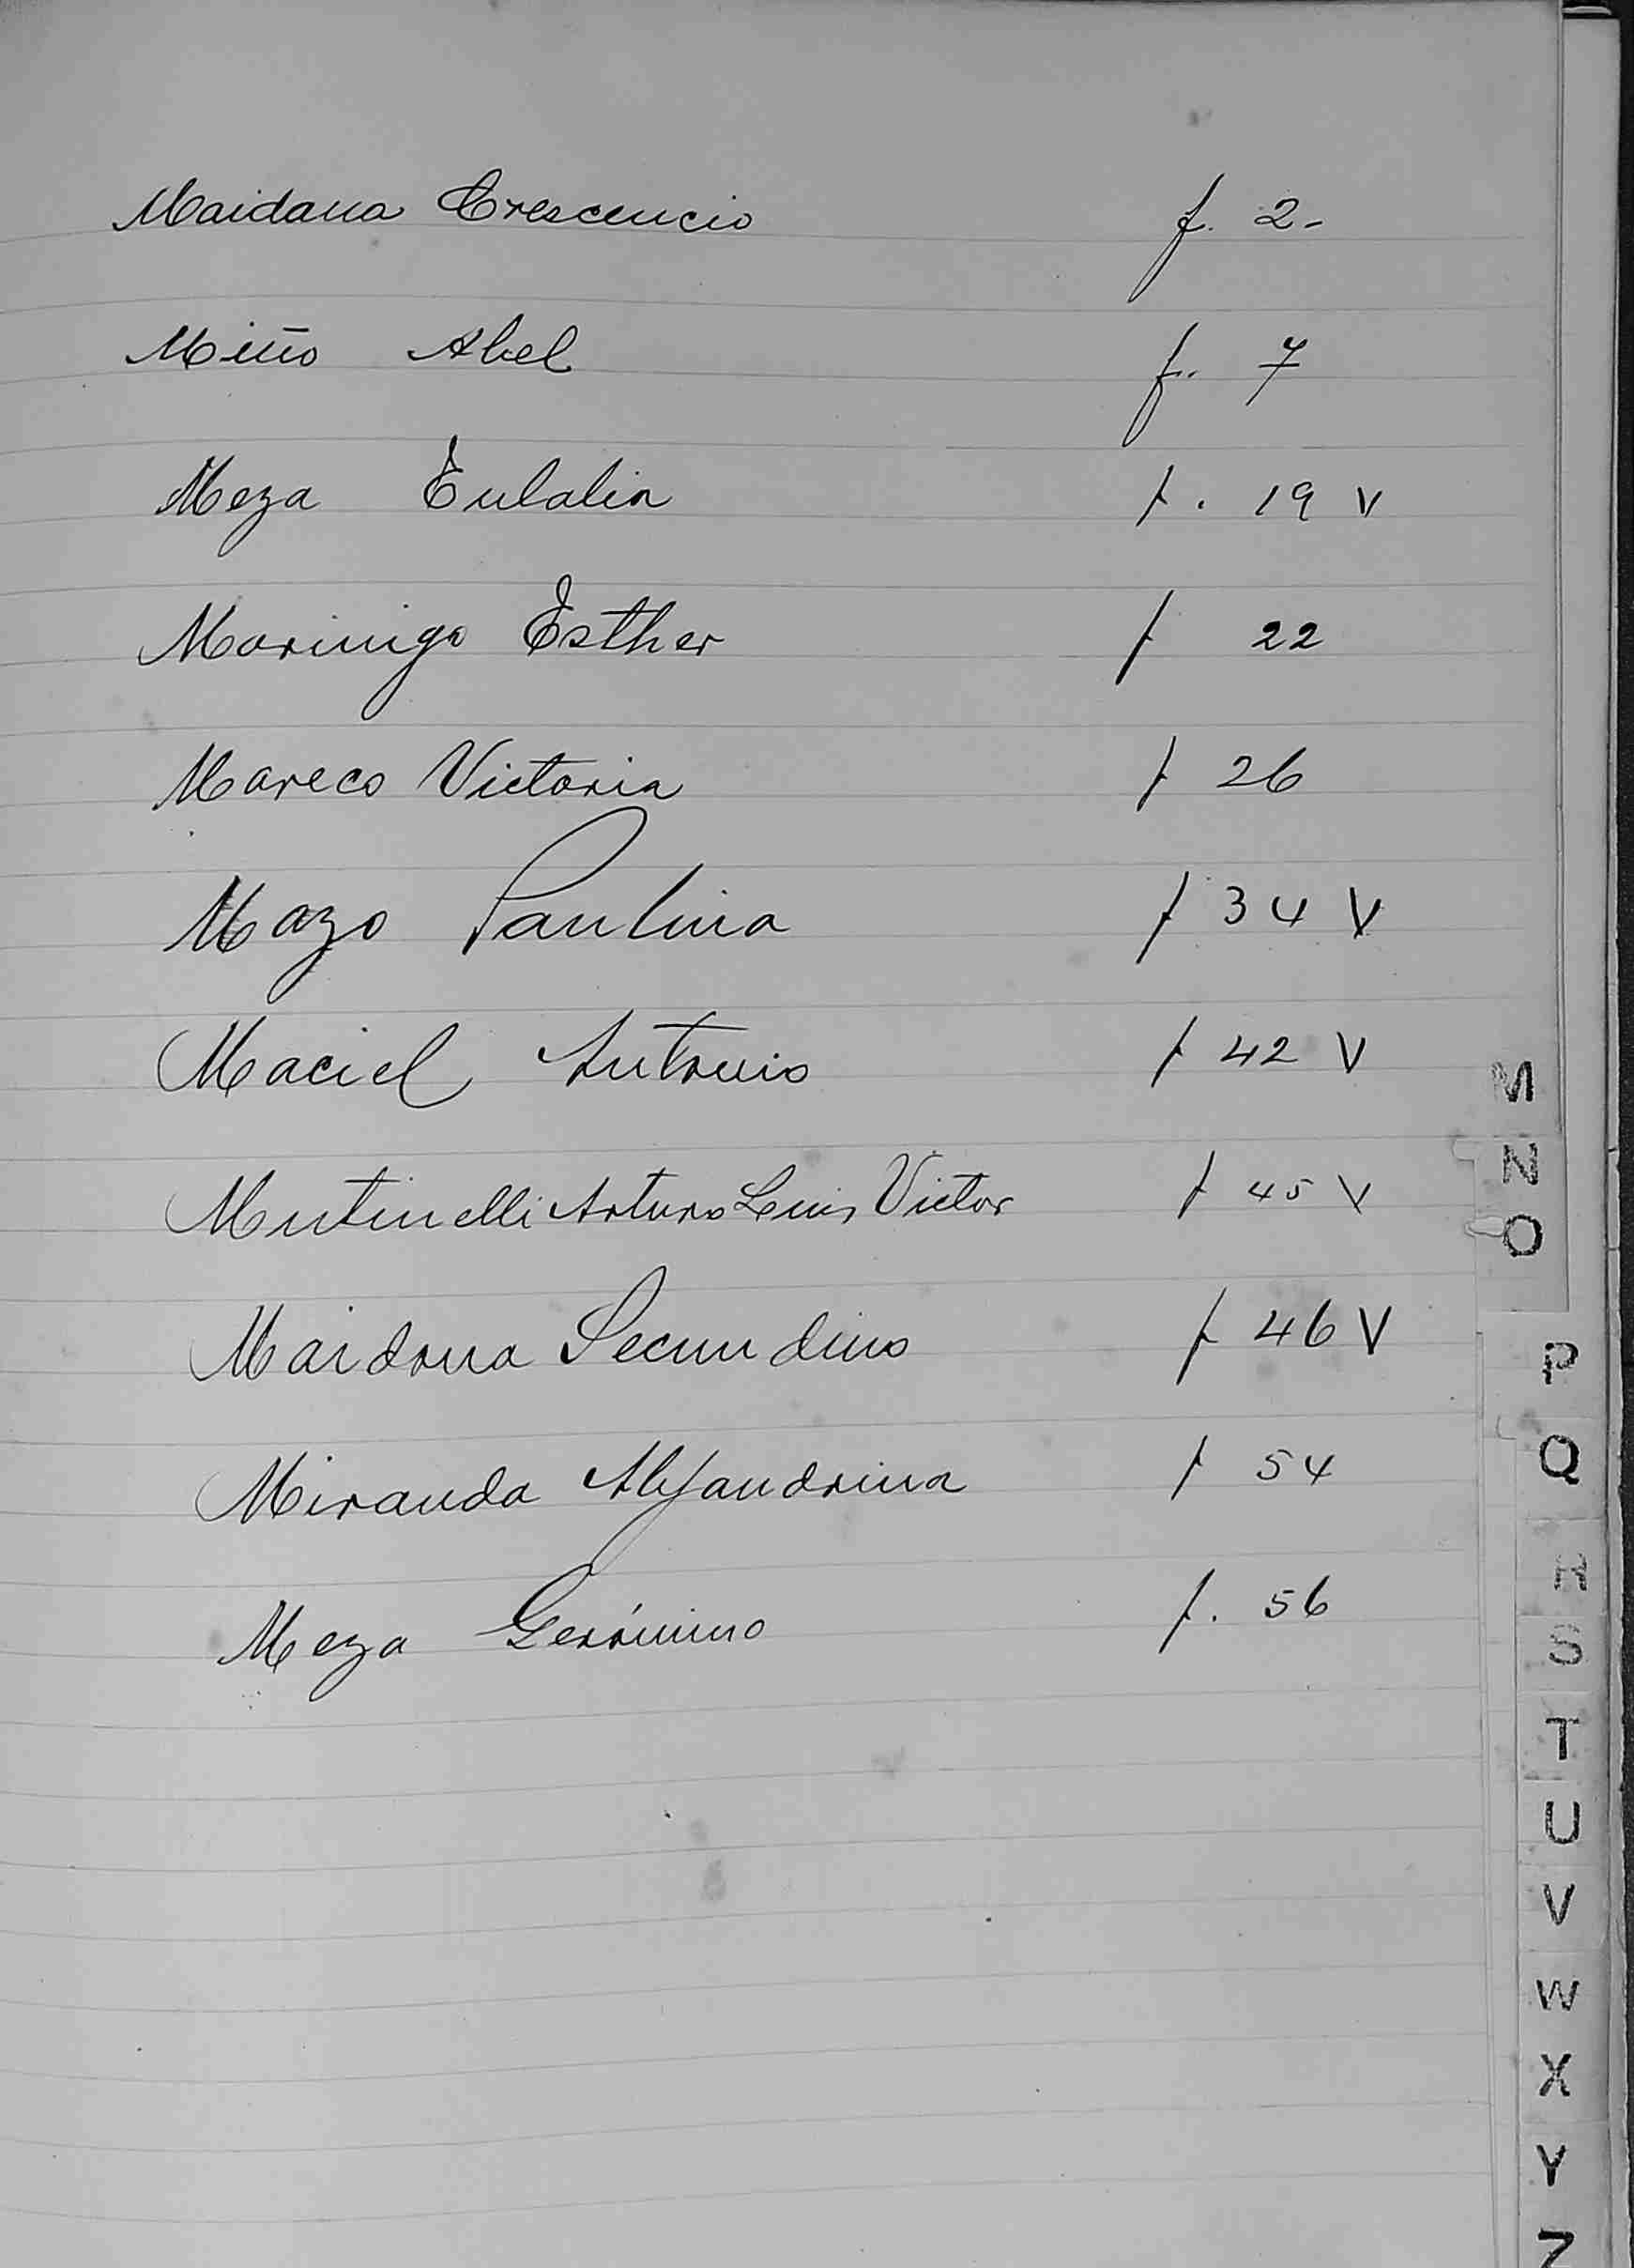 Maidana Crescencio f. 2-
Miño Abel f. 7
Meza Eulalia f. 19 v
Morinigo Esther f 22
Mareco Victoria f 26
Mazo Paulina f 34 V
Maciel Antonio f 42 V
Mutinelli Arturo Luis Victor f 45 V
Maidana Secundino f 46 V
Miranda Alejandrina f 54
Meza Gerónimo f. 56
M
N
O
P
Q
R
S
T
U
V
W
X
Y
Z